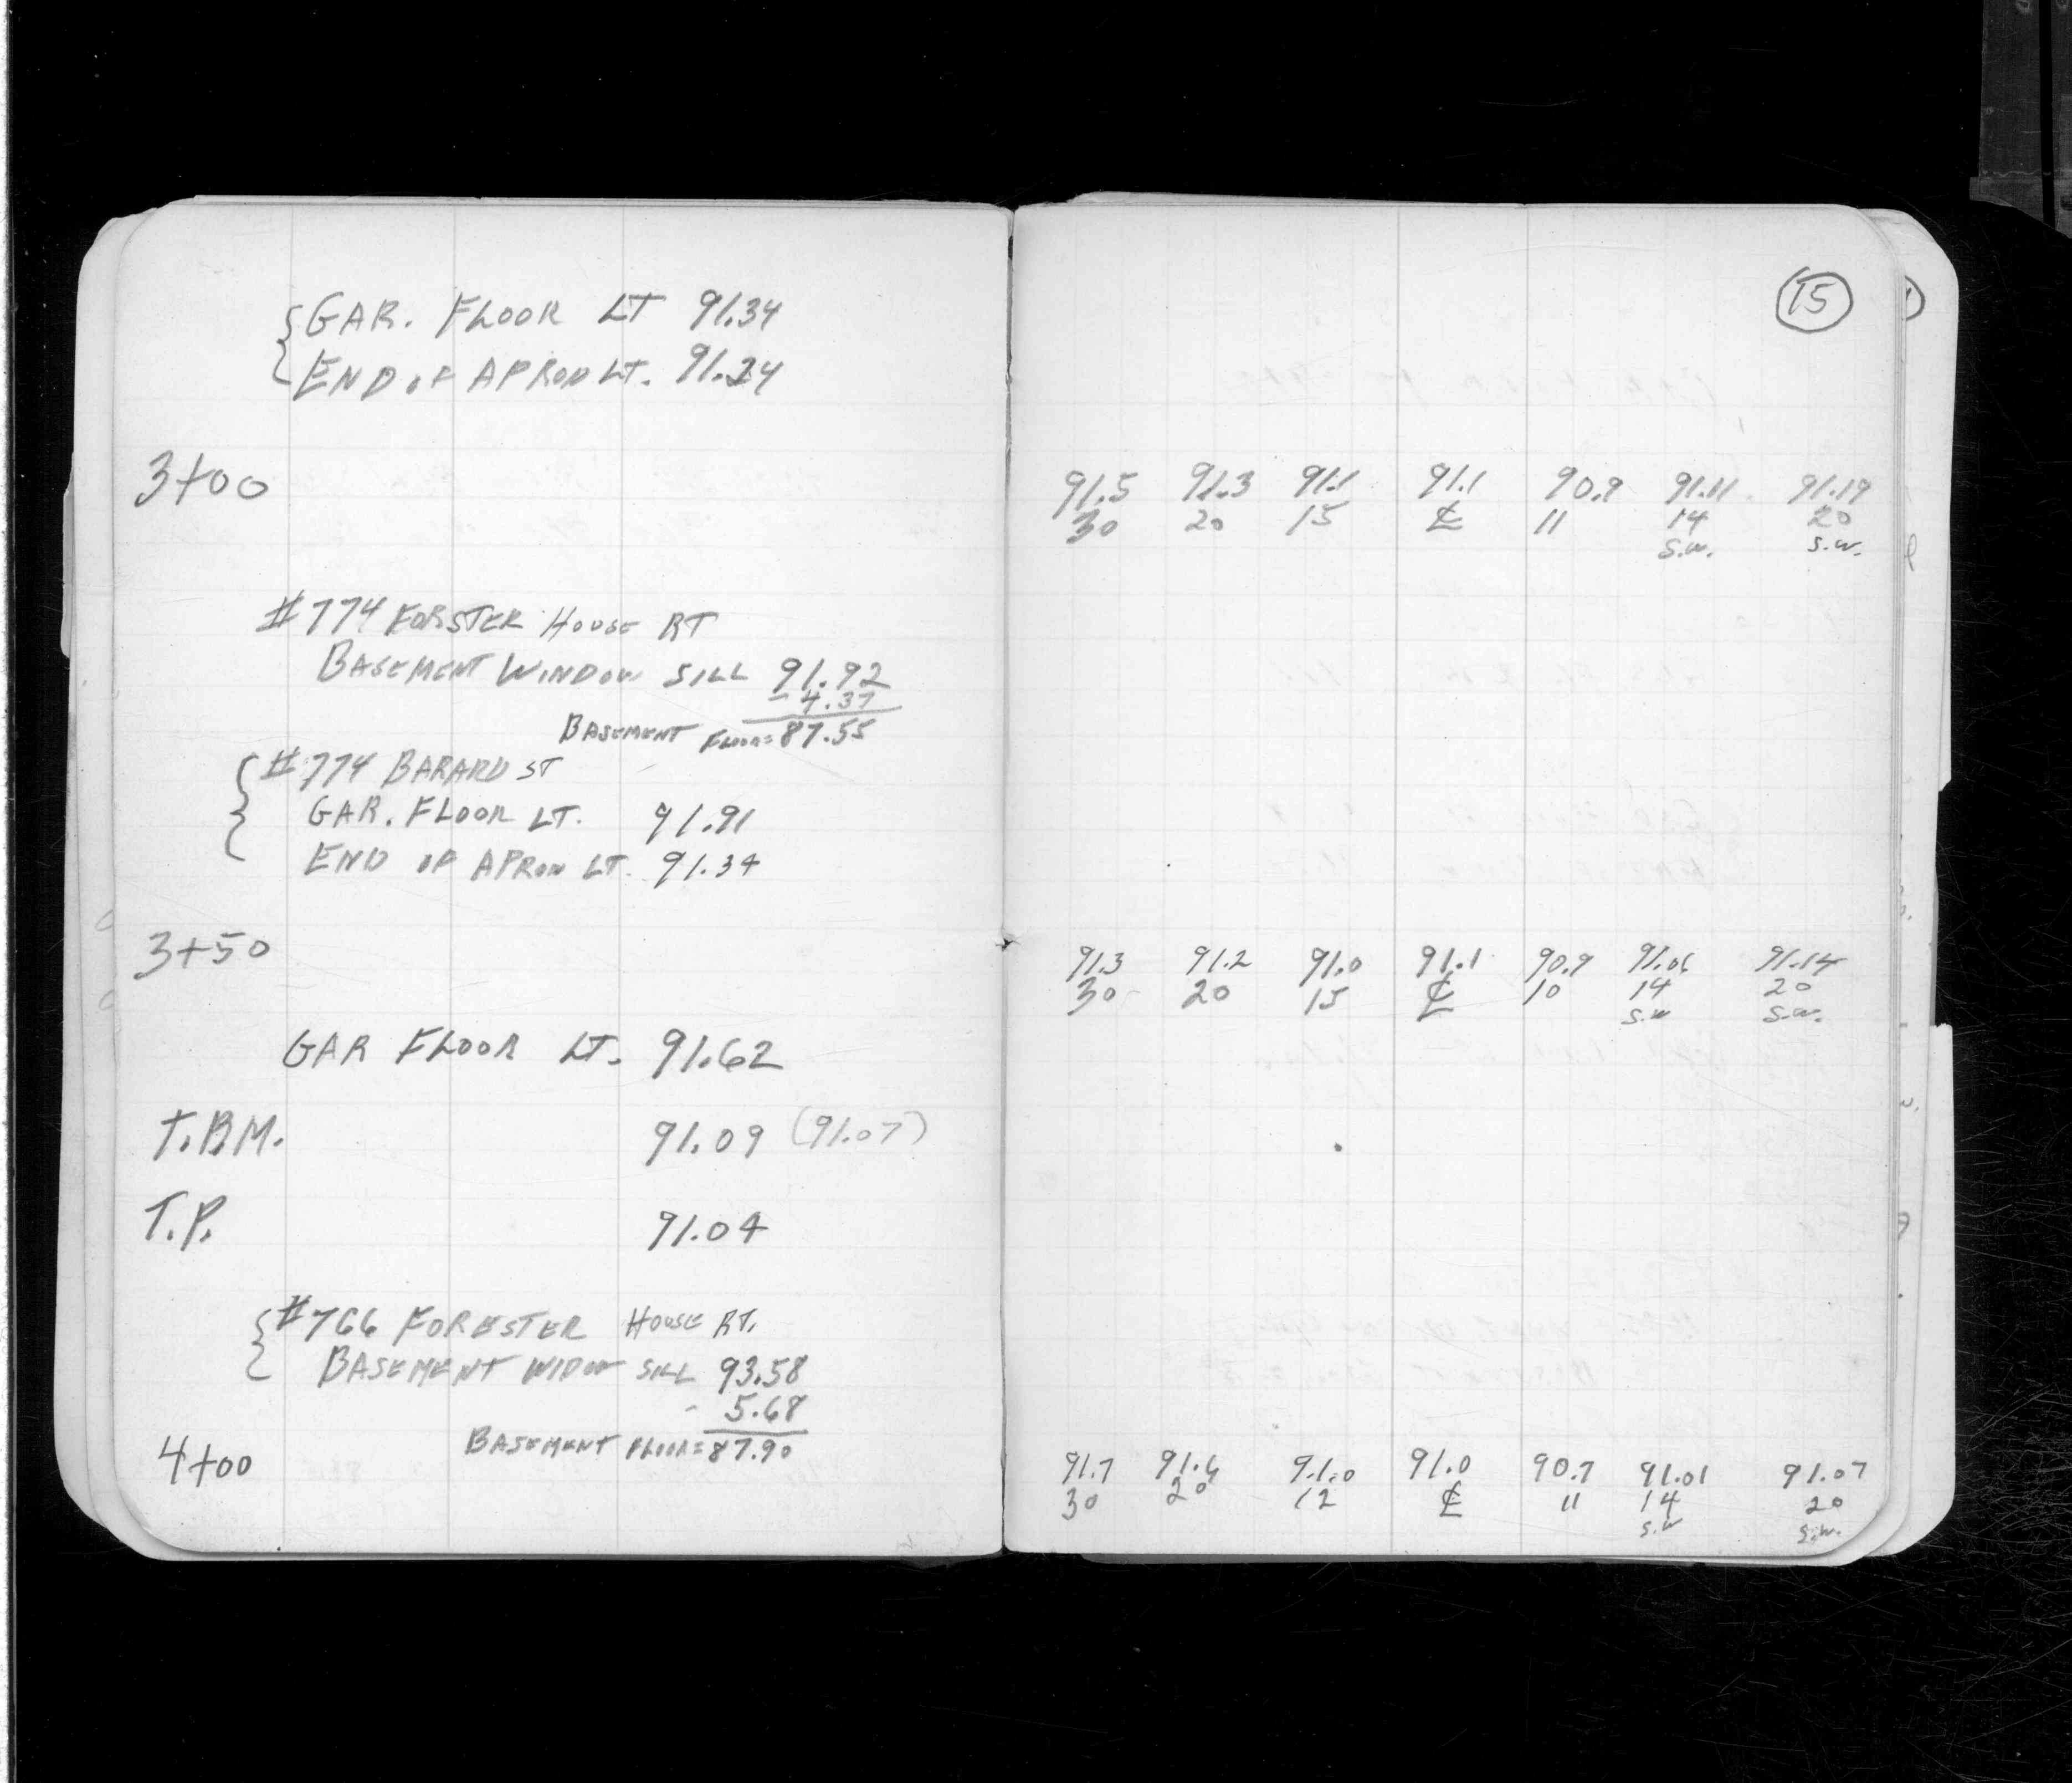 15
GAR. FLOOR LT 91.34
END OF APRON LT. 91.24
3+00
91.5 91.3 91.1 91.1 90.9 91.11 91.19
30 20 15 ℄ 11 14 20
S.W. S.W.
#774 FORSTER HOUSE RT
BASEMENT WINDOW SILL 91.92
- 4.37
BASEMENT FLOOR= 87.55
#774 BARARD ST
GAR. FLOOR LT. 91.91
END OF APRON LT. 91.34
3+50
91.3 91.2 91.0 91.1 90.9 91.06 91.14
30 20 15 ℄ 10 14 20
S.W S.W.
GAR FLOOR LT. 91.62
T.B.M. 91.09 (91.07)
T.P. 91.04
#766 FORESTER HOUSE RT.
BASEMENT WIDOW SILL 93.58
- 5.68
BASEMENT FLOOR= 87.90
4+00
91.7 91.6 91.0 91.0 90.7 91.01 91.07
30 20 12 ℄ 11 14 20
S.W S.W.